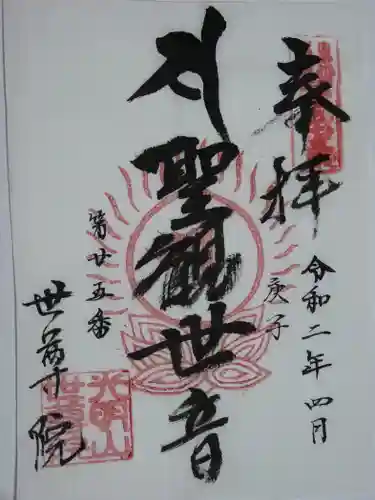 奉拝
令和二年四月
庚子
聖観世音
第廿五番
世尊院
光明山